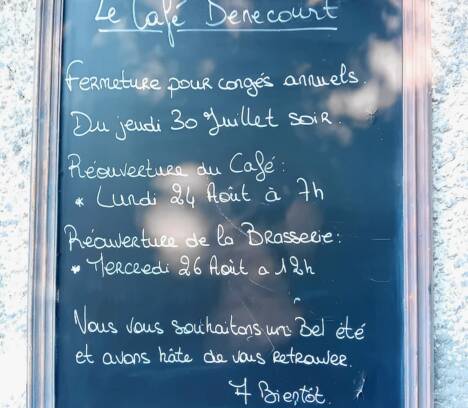 Le Café Denecourt
Fermeture pour congés annuels.
Du jeudi 30 Juillet soir.
Réouverture du Café :
* Lundi 24 Août à 7h
Réouverture de la Brasserie :
* Mercredi 26 Août a 12h
Nous vous souhaitons un Bel été
et avons hâte de vous retrouver.
A Bientôt.